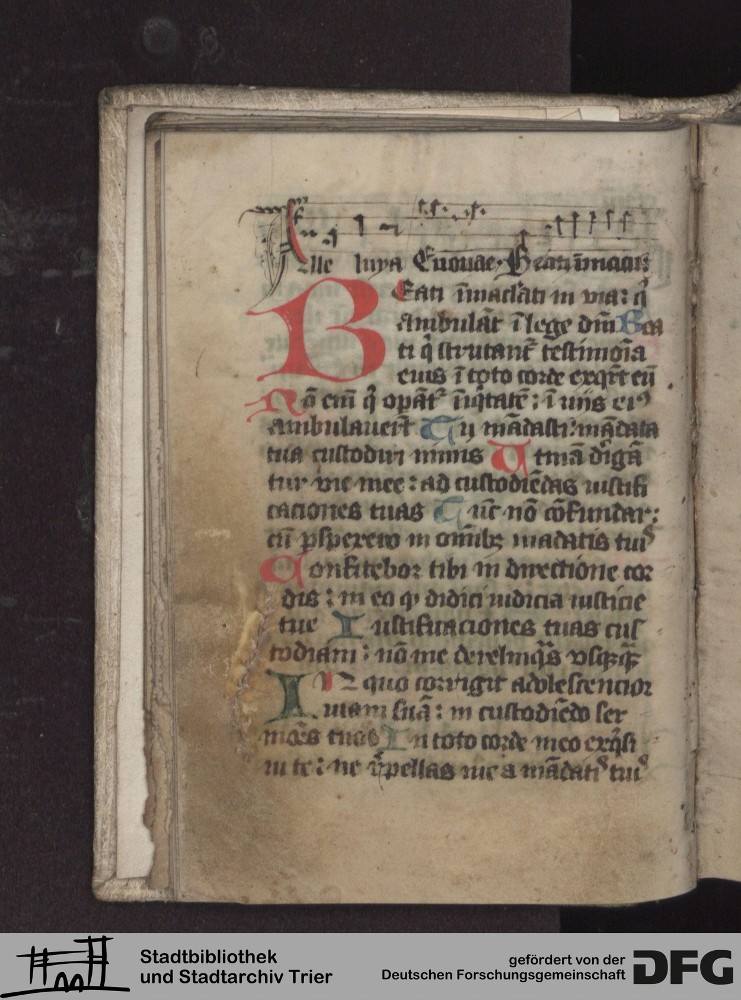 Alle luya Euouae. Beati īmacu
Eati īmaclati in via: q̄
ambulāt ī lege dm̄ Bea
ti q̄ scrutant᷒ testimoīa
eius ī toto corde exqrūt eū
Nō em̄ q̄ opāt᷒ īiqtatē: ī uijs eiꝰ
ambulauerūt Tu mādasti: mādata
tua custodiri nimis Utinā dirigā
tur vie mee: ad custodiēdas iustifi
caciones tuas Tūc nō cōfundar:
cū ꝓspexero in om̄ibꝫ mādatis tuis
Confitebor tibi in directione cor
dis: in eo ꝙ didici iudicia iusticie
tue Iustificaciones tuas cus
todiam: nō me derelinqs vsqꝫqꝫ
IN quo corrigit adolescencior
viam suā: in custodiēdo ser
mōes tuos In toto corde meo exqsi
ui te: ne repellas me a mādatis tuis
Stadtbibliothek
und Stadtarchiv Trier
gefördert von der
Deutschen Forschungsgemeinschaft
DFG